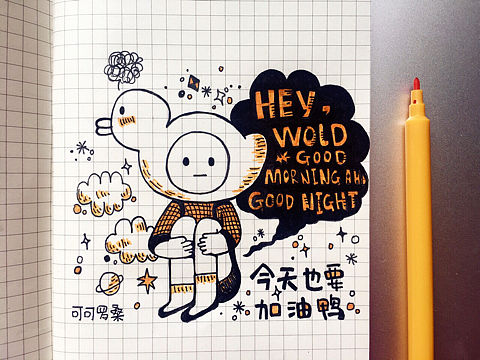 HEY,
WOLD
GOOD
MORNING AHD
GOOD NIGHT
今天也要
加油鸭
可可罗桑